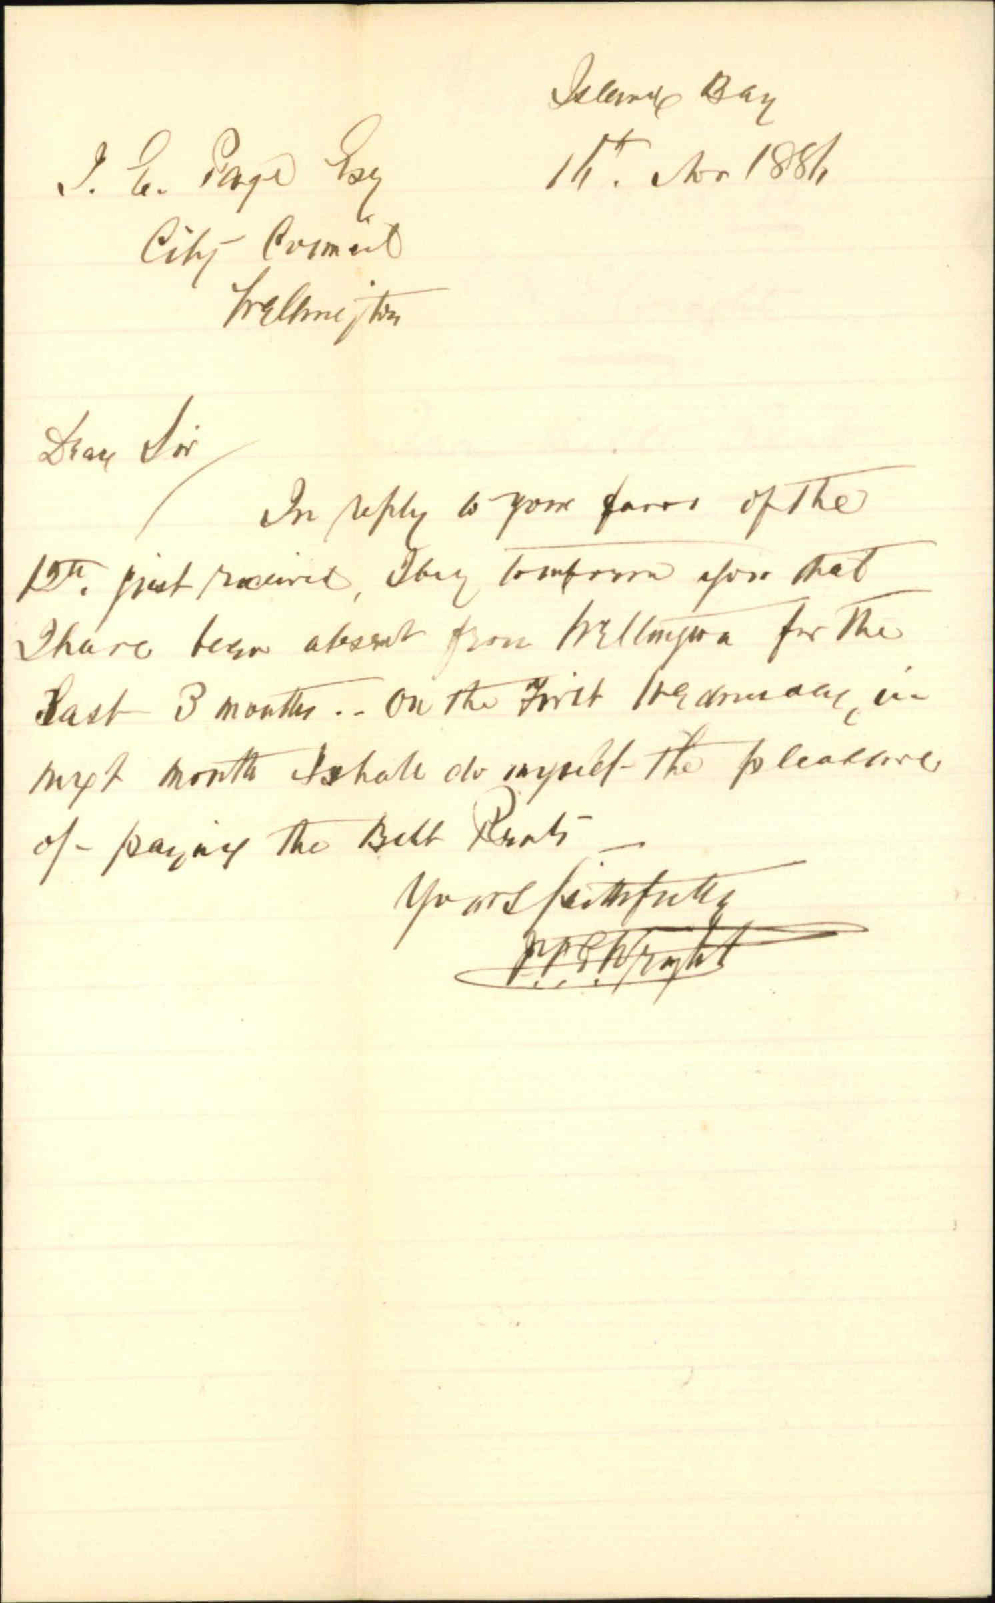 Island Bay
14th. Nov 1884
J. E. Page Esq
City Council
Wellington
Dear Sir
In reply to your favor of the
12th. just received, I beg to inform you that
I have been absent from Wellington for the
Last 3 months .. On the First Wednesday, in
next month I shall do myself the pleasure
of paying the Belt Rents —
Yours faithfully
Wright